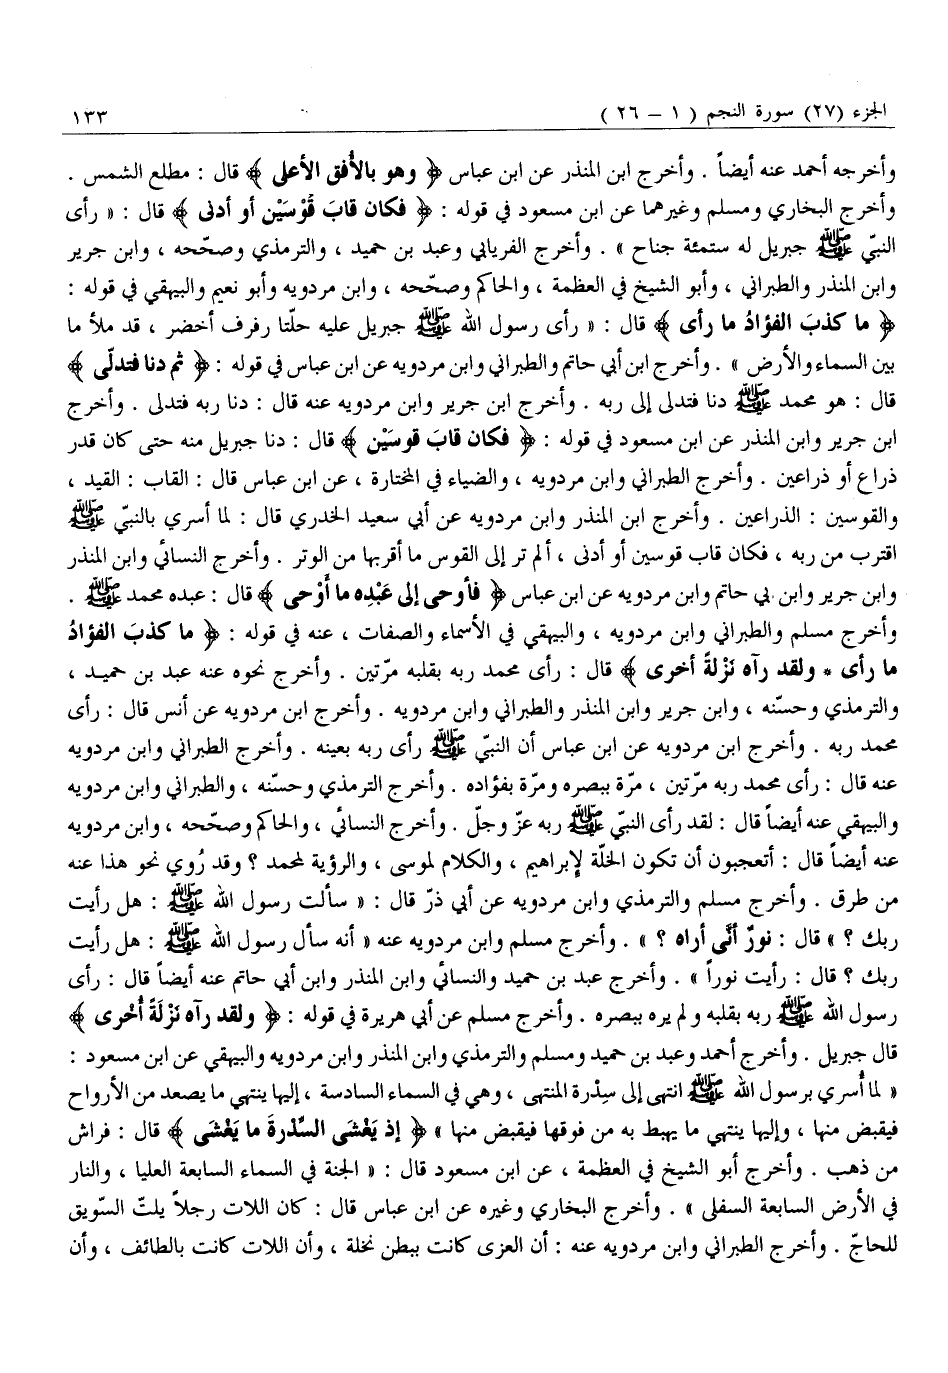 الجزء (٢٧) سورة النجم ( ١ – ٢٦ ) ١٣٣
وأخرجه أحمد عنه أيضاً . وأخرج ابن المنذر عن ابن عباس ﴿ وهو بالأُفق الأعلى ﴾ قال : مطلع الشمس .
وأخرج البخاري ومسلم وغيرهما عن ابن مسعود في قوله : ﴿ فكان قابَ قَوْسَيْن أو أدنى ﴾ قال : « رأى
النبيّ ﷺ جبريل له ستمئة جناح » . وأخرج الفريابي وعبد بن حميد ، والترمذي وصحّحه ، وابن جرير
وابن المنذر والطبراني ، وأبو الشيخ في العظمة ، والحاكم وصحّحه ، وابن مردويه وأبو نعيم والبيهقي في قوله :
﴿ ما كذبَ الفؤادُ ما رأى ﴾ قال : « رأى رسول الله ﷺ جبريل عليه حلّتا رفرف أخضر ، قد ملأ ما
بين السماء والأرض » . وأخرج ابن أبي حاتم والطبراني وابن مردويه عن ابن عباس في قوله : ﴿ ثم دنا فتدلّى ﴾
قال : هو محمد ﷺ دنا فتدلى إلى ربه . وأخرج ابن جرير وابن مردويه عنه قال : دنا ربه فتدلى . وأخرج
ابن جرير وابن المنذر عن ابن مسعود في قوله : ﴿ فكان قابَ قوسَيْن ﴾ قال : دنا جبريل منه حتى كان قدر
ذراع أو ذراعين . وأخرج الطبراني وابن مردويه ، والضياء في المختارة ، عن ابن عباس قال : القاب : القيد ،
والقوسين : الذراعين . وأخرج ابن المنذر وابن مردويه عن أبي سعيد الخدري قال : لما أسري بالنبيّ ﷺ
اقترب من ربه ، فكان قاب قوسين أو أدنى ، ألم تر إلى القوس ما أقربها من الوتر . وأخرج النسائي وابن المنذر
وابن جرير وابن بي حاتم وابن مردويه عن ابن عباس ﴿ فأوحى إلى عَبْدِه ما أَوْحى ﴾ قال : عبده محمد ﷺ .
وأخرج مسلم والطبراني وابن مردويه ، والبيهقي في الأسماء والصفات ، عنه في قوله : ﴿ ما كذبَ الفؤادُ
ما رأى * ولقد رآه نَزْلةً أخرى ﴾ قال : رأى محمد ربه بقلبه مرّتين . وأخرج نحوه عنه عبد بن حميد ،
والترمذي وحسّنه ، وابن جرير وابن المنذر والطبراني وابن مردويه . وأخرج ابن مردويه عن أنس قال : رأى
محمد ربه . وأخرج ابن مردويه عن ابن عباس أن النبيّ ﷺ رأى ربه بعينه . وأخرج الطبراني وابن مردويه
عنه قال : رأى محمد ربه مرّتين ، مرّة ببصره ومرّة بفؤاده . وأخرج الترمذي وحسّنه ، والطبراني وابن مردويه
والبيهقي عنه أيضاً قال : لقد رأى النبيّ ﷺ ربه عزّ وجلّ . وأخرج النسائي ، والحاكم وصحّحه ، وابن مردويه
عنه أيضاً قال : أتعجبون أن تكون الخلّة لإبراهيم ، والكلام لموسى ، والرؤية لمحمد ؟ وقد رُوي نحو هذا عنه
من طرق . وأخرج مسلم والترمذي وابن مردويه عن أبي ذرّ قال : « سألت رسول الله ﷺ : هل رأيت
ربك ؟ » قال : نورٌ أنَّى أراه ؟ » . وأخرج مسلم وابن مردويه عنه « أنه سأل رسول الله ﷺ : هل رأيت
ربك ؟ قال : رأيت نوراً » . وأخرج عبد بن حميد والنسائي وابن المنذر وابن أبي حاتم عنه أيضاً قال : رأى
رسول الله ﷺ ربه بقلبه ولم يره ببصره . وأخرج مسلم عن أبي هريرة في قوله : ﴿ ولقد رآه نَزْلَةً أُخْرى ﴾
قال جبريل . وأخرج أحمد وعبد بن حميد ومسلم والترمذي وابن المنذر وابن مردويه والبيهقي عن ابن مسعود :
« لما أُسري برسول الله ﷺ انتهى إلى سِدْرة المنتهى ، وهي في السماء السادسة ، إليها ينتهي ما يصعد من الأرواح
فيقبض منها ، وإليها ينتهي ما يهبط به من فوقها فيقبض منها » ﴿ إذ يَغْشَى السِّدْرةَ ما يَغْشَى ﴾ قال : فراش
من ذهب . وأخرج أبو الشيخ في العظمة ، عن ابن مسعود قال : « الجنة في السماء السابعة العليا ، والنار
في الأرض السابعة السفلى » . وأخرج البخاري وغيره عن ابن عباس قال : كان اللات رجلاً يلتّ السّويق
للحاجّ . وأخرج الطبراني وابن مردويه عنه : أن العزى كانت ببطن نخلة ، وأن اللات كانت بالطائف ، وأن